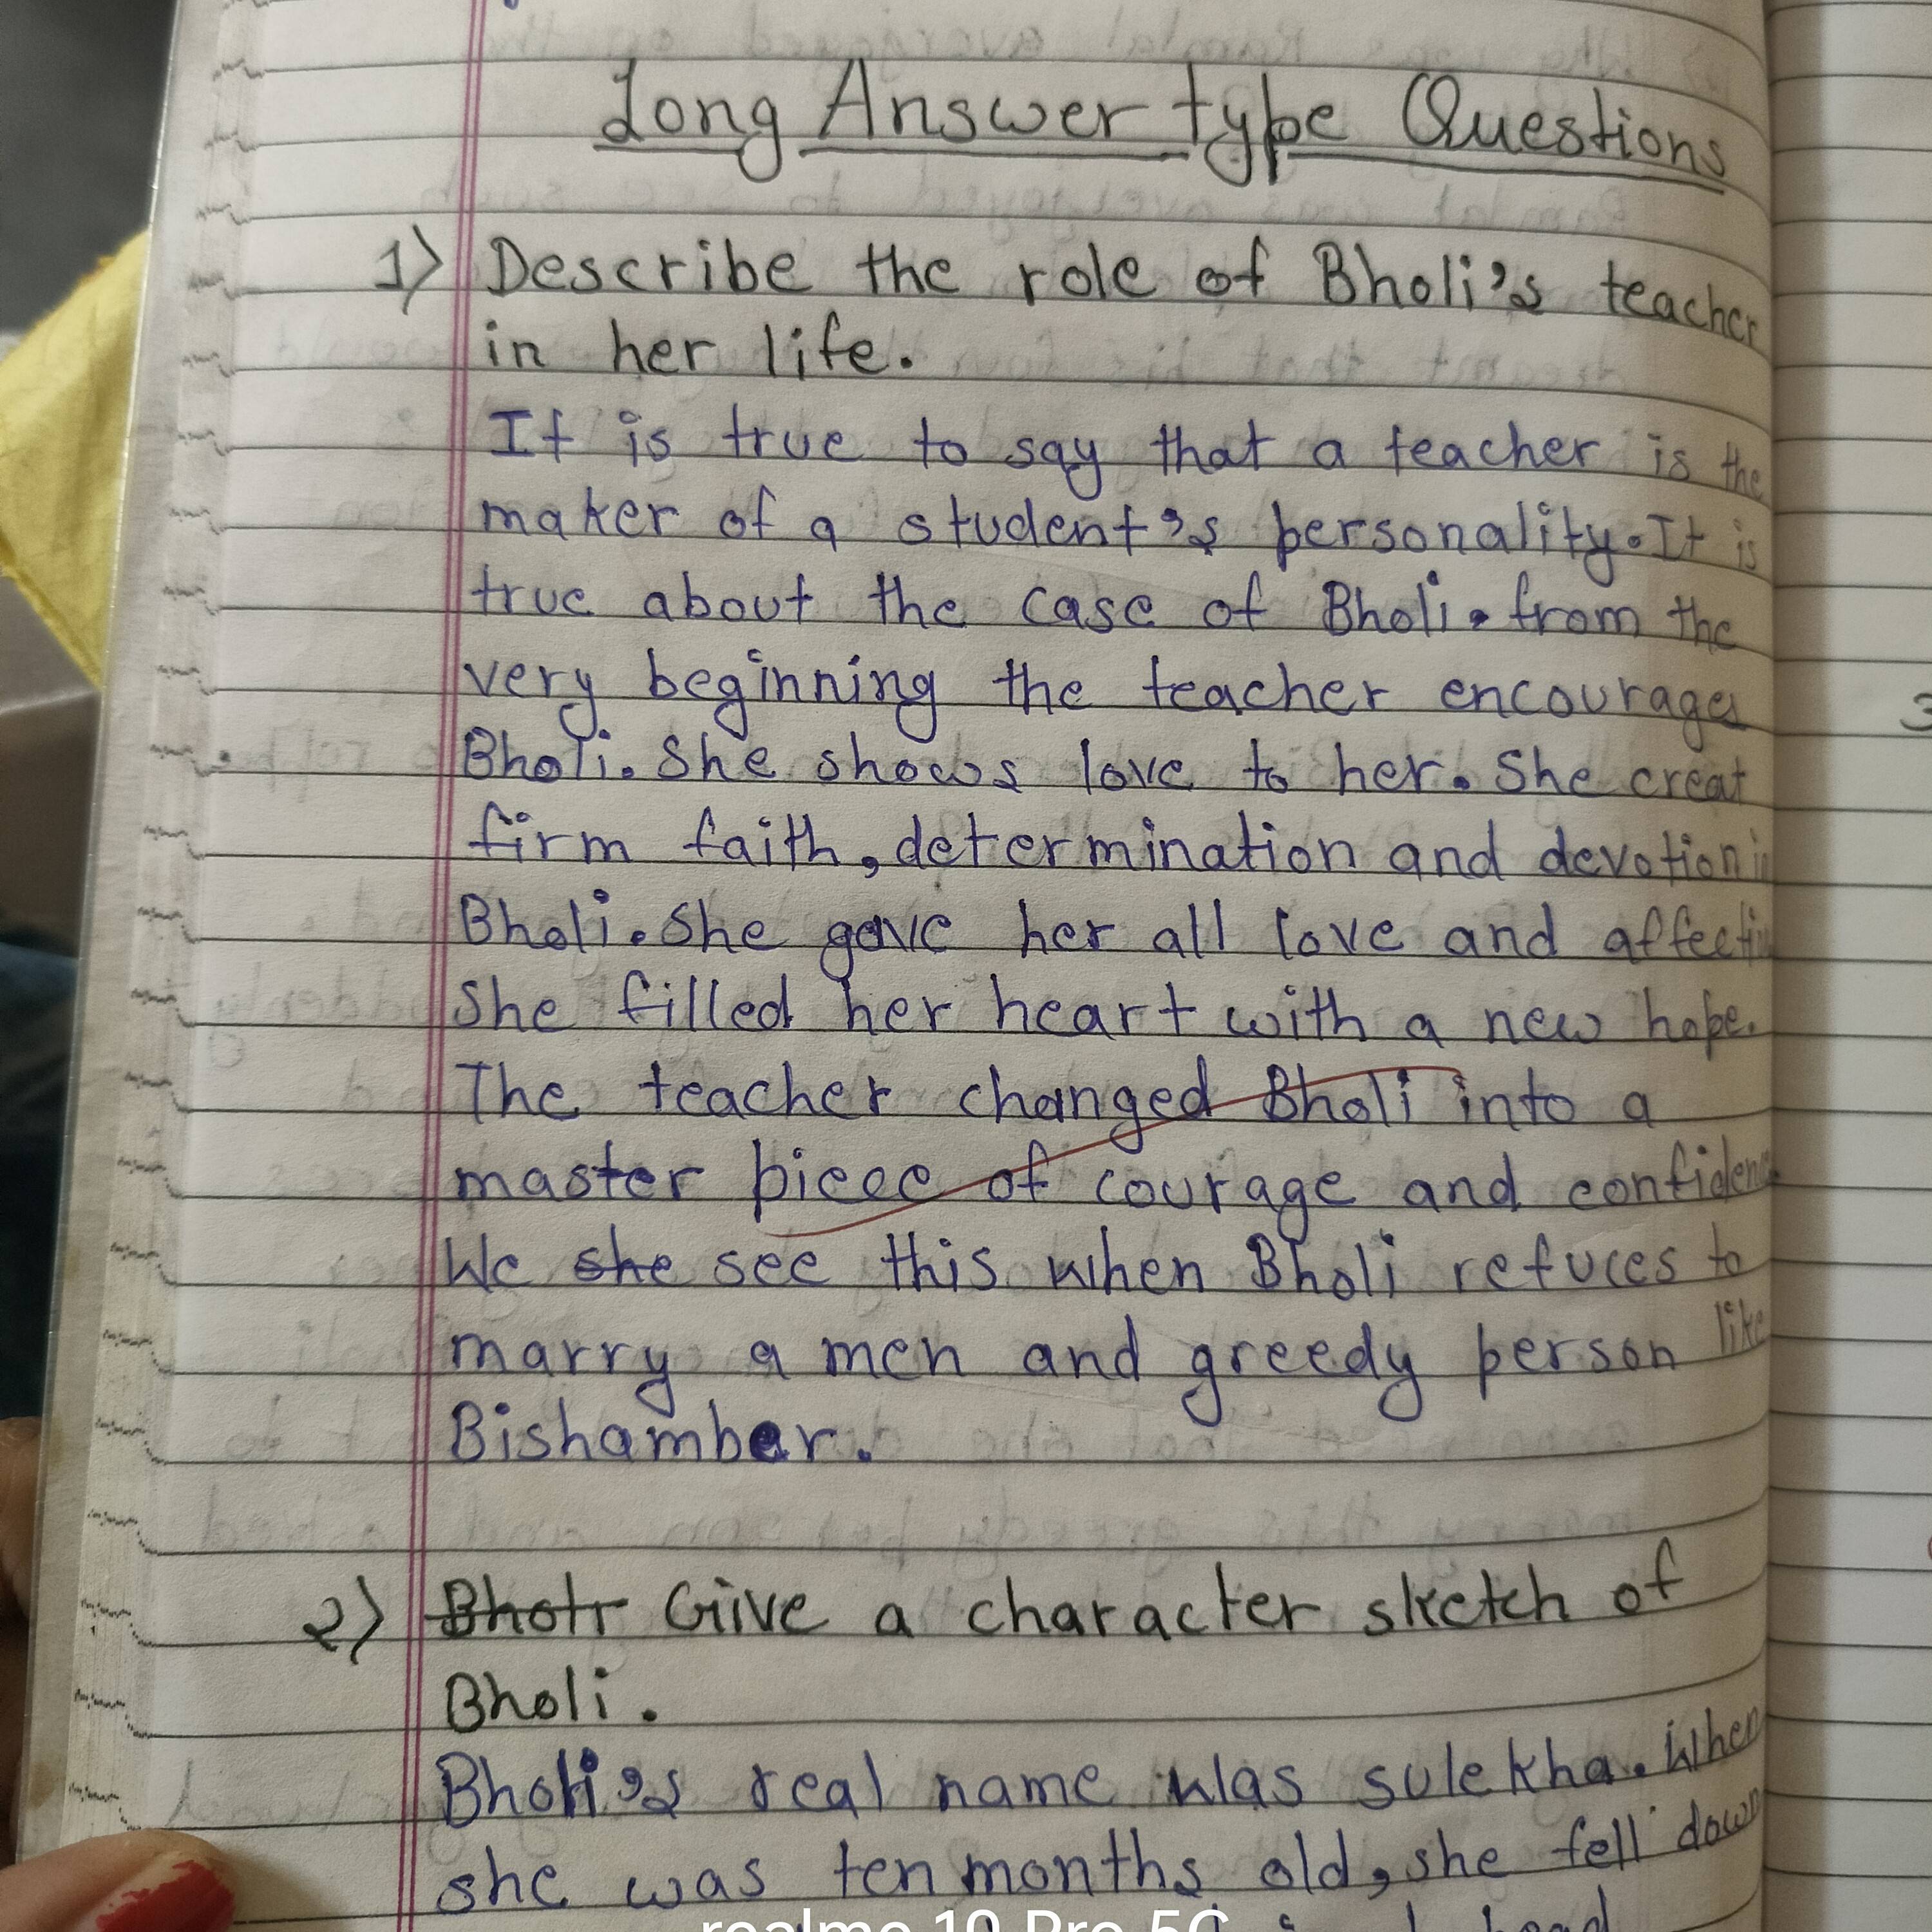 Long Answer type Questions
1) Describe the role of Bholi's teacher
in her life.
It is true to say that a teacher is the
maker of a student's personality. It is
true about the case of Bholi. from the
very beginning the teacher encourages
Bholi. She shows love to her. She creat
firm faith, determination and devotion in
Bholi. She gave her all love and affecti
She filled her heart with a new hope.
The teacher changed Bholi into a
master piece of courage and confidenc
We she see this when Bholi refuces to
marry a men and greedy person like
Bishamber.
2) Bholi Give a character sketch of
Bholi.
Bholi's real name was sulekha. When
she was ten months old, she fell down
head
realme 10 Pro 5G
3